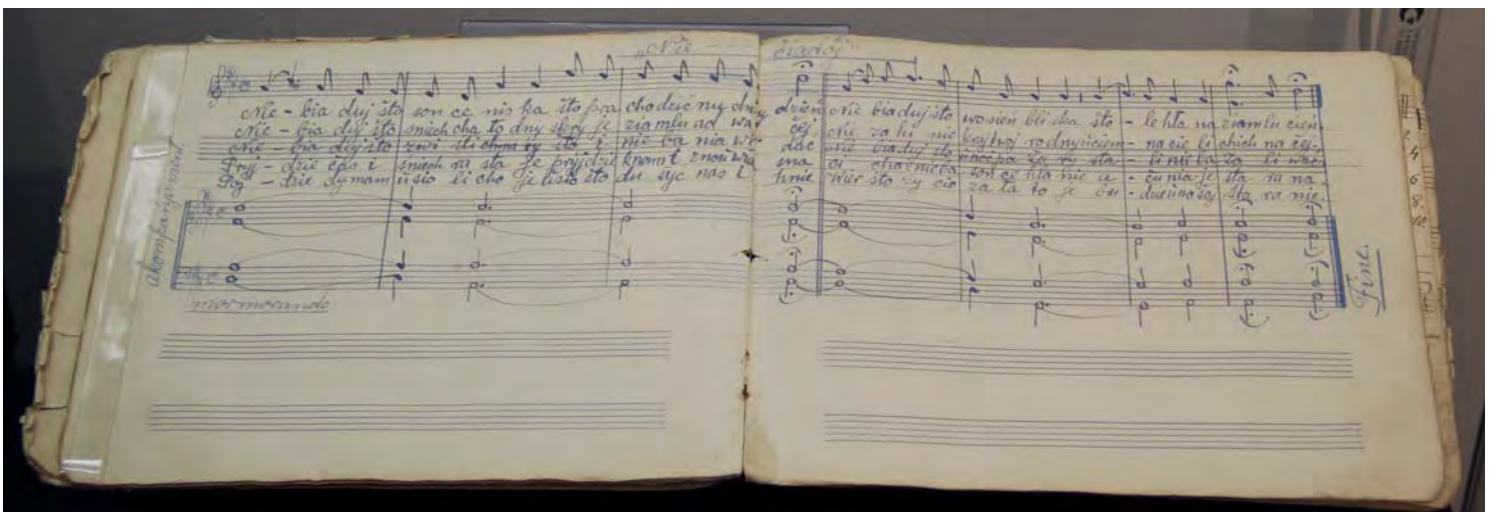 „Nie - biaduj"
Nie - bia duj što son ce nis ka što pra chodzić dzień Nie biaduj što wosień bliska što - lehła na ziamlu cień.
Nie - bia duj što śniech cha ło dny skry je ziamlu ad wa čej. Nie za hi nie kraj twoj rodny ściem - na cie li chich na čej.
Nie - bia duj što zwi śli chma ry što i nie ba nia wi dać Nie biaduj što noč pa ža ry sta - li nieba za li wać
Pryj - dzie čas i śniech ra sta je pryjdzie k nam i znoŭ wia sna nieba son ce hla nie a - ču nia je sta ra na.
Poj - dzie dymam ŭsio li cho je ŭsio što du šyć nas i hnie wier što žy cio za ła to je bu - dzie ŭ našaj sta ra nie.
akompanijament
mormorando
Fine.